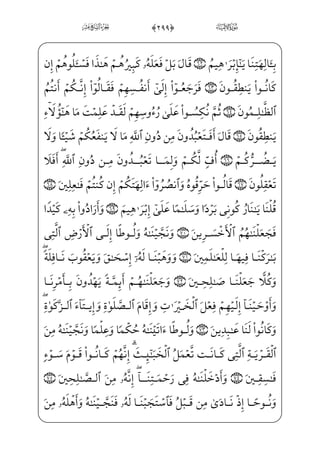 الجزء السابع عشر ﴿٢٩٩﴾ سورة الأنبياء
بِـَٔالِهَتِنَا يَٰٓإِبْرَٰهِيمُ ۝ قَالَ بَلْ فَعَلَهُۥ كَبِيرُهُمْ هَٰذَا فَسْـَٔلُوهُمْ إِن
كَانُوا۟ يَنطِقُونَ ۝ فَرَجَعُوٓا۟ إِلَىٰٓ أَنفُسِهِمْ فَقَالُوٓا۟ إِنَّكُمْ أَنتُمُ
ٱلظَّٰلِمُونَ ۝ ثُمَّ نُكِسُوا۟ عَلَىٰ رُءُوسِهِمْ لَقَدْ عَلِمْتَ مَا هَٰٓؤُلَآءِ
يَنطِقُونَ ۝ قَالَ أَفَتَعْبُدُونَ مِن دُونِ ٱللَّهِ مَا لَا يَنفَعُكُمْ شَيْـًٔا وَلَا
يَضُرُّكُمْ ۝ أُفٍّ لَّكُمْ وَلِمَا تَعْبُدُونَ مِن دُونِ ٱللَّهِ أَفَلَا
تَعْقِلُونَ ۝ قَالُوا۟ حَرِّقُوهُ وَٱنصُرُوٓا۟ ءَالِهَتَكُمْ إِن كُنتُمْ فَٰعِلِينَ ۝
قُلْنَا يَٰنَارُ كُونِى بَرْدًا وَسَلَٰمًا عَلَىٰٓ إِبْرَٰهِيمَ ۝ وَأَرَادُوا۟ بِهِۦ كَيْدًا
فَجَعَلْنَٰهُمُ ٱلْأَخْسَرِينَ ۝ وَنَجَّيْنَٰهُ وَلُوطًا إِلَى ٱلْأَرْضِ ٱلَّتِى
بَٰرَكْنَا فِيهَا لِلْعَٰلَمِينَ ۝ وَوَهَبْنَا لَهُۥٓ إِسْحَٰقَ وَيَعْقُوبَ نَافِلَةً
وَكُلًّا جَعَلْنَا صَٰلِحِينَ ۝ وَجَعَلْنَٰهُمْ أَئِمَّةً يَهْدُونَ بِأَمْرِنَا
وَأَوْحَيْنَآ إِلَيْهِمْ فِعْلَ ٱلْخَيْرَٰتِ وَإِقَامَ ٱلصَّلَوٰةِ وَإِيتَآءَ ٱلزَّكَوٰةِ
وَكَانُوا۟ لَنَا عَٰبِدِينَ ۝ وَلُوطًا ءَاتَيْنَٰهُ حُكْمًا وَعِلْمًا وَنَجَّيْنَٰهُ مِنَ
ٱلْقَرْيَةِ ٱلَّتِى كَانَت تَّعْمَلُ ٱلْخَبَٰٓئِثَ إِنَّهُمْ كَانُوا۟ قَوْمَ سَوْءٍ
فَٰسِقِينَ ۝ وَأَدْخَلْنَٰهُ فِى رَحْمَتِنَآ إِنَّهُۥ مِنَ ٱلصَّٰلِحِينَ ۝
وَنُوحًا إِذْ نَادَىٰ مِن قَبْلُ فَٱسْتَجَبْنَا لَهُۥ فَنَجَّيْنَٰهُ وَأَهْلَهُۥ مِنَ